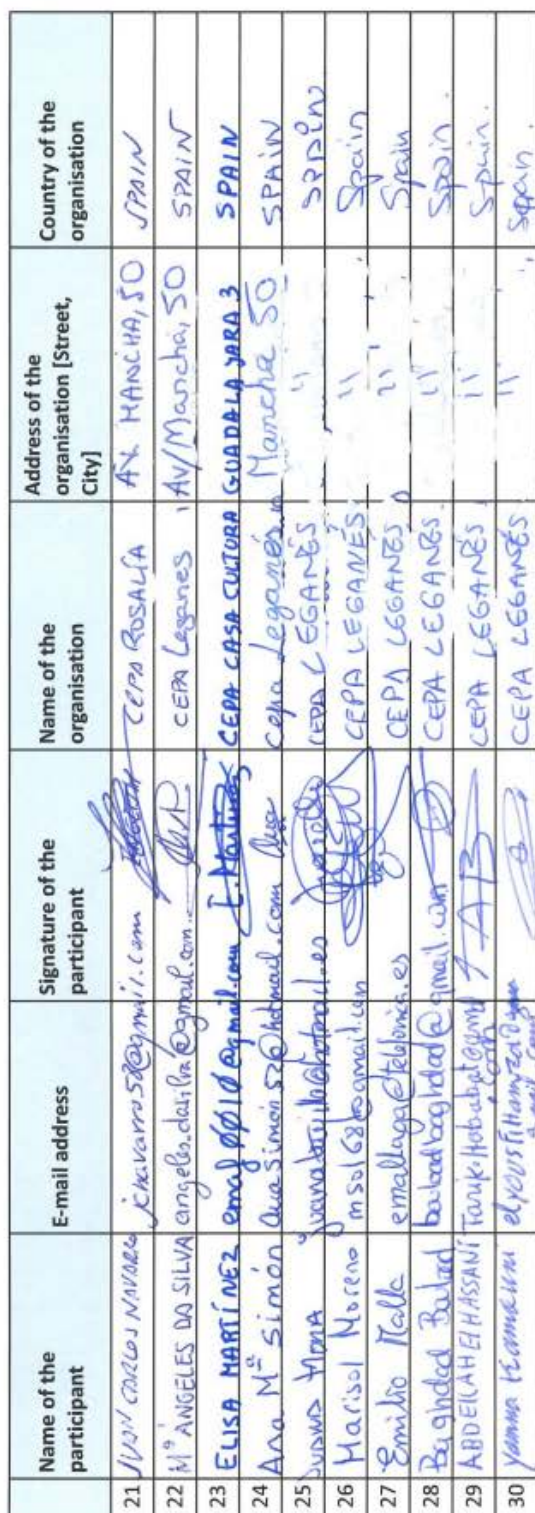 Name of the participant E-mail address Signature of the participant Name of the organisation Address of the organisation [Street, City] Country of the organisation
21 JUAN CARLOS NAVARRO jcnavarro58@gmail.com CEPA ROSALÍA AV. MANCHA, 50 SPAIN
22 Mª ANGELES DA SILVA angeles.dasilva@gmail.com CEPA Leganes Av/Mancha, 50 SPAIN
23 ELISA MARTÍNEZ E. Martínez CEPA CASA CULTURA GUADALAJARA 3 SPAIN
24 Ana Mª Simón anasimon52@hotmail.com Ana Cepa Leganés Mancha 50 SPAIN
25 JUANA CEPA LEGANÉS " SPAIN
26 Marisol Moreno CEPA LEGANÉS " Spain
27 Emilio Malla emallaga@telefonica.es CEPA LEGANES " Spain
28 Baghdad Batad CEPA LEGANES " Spain.
29 ABDELILAH El HASSANI AB CEPA LEGANÉS " Spain.
30 CEPA LEGANES " Spain.